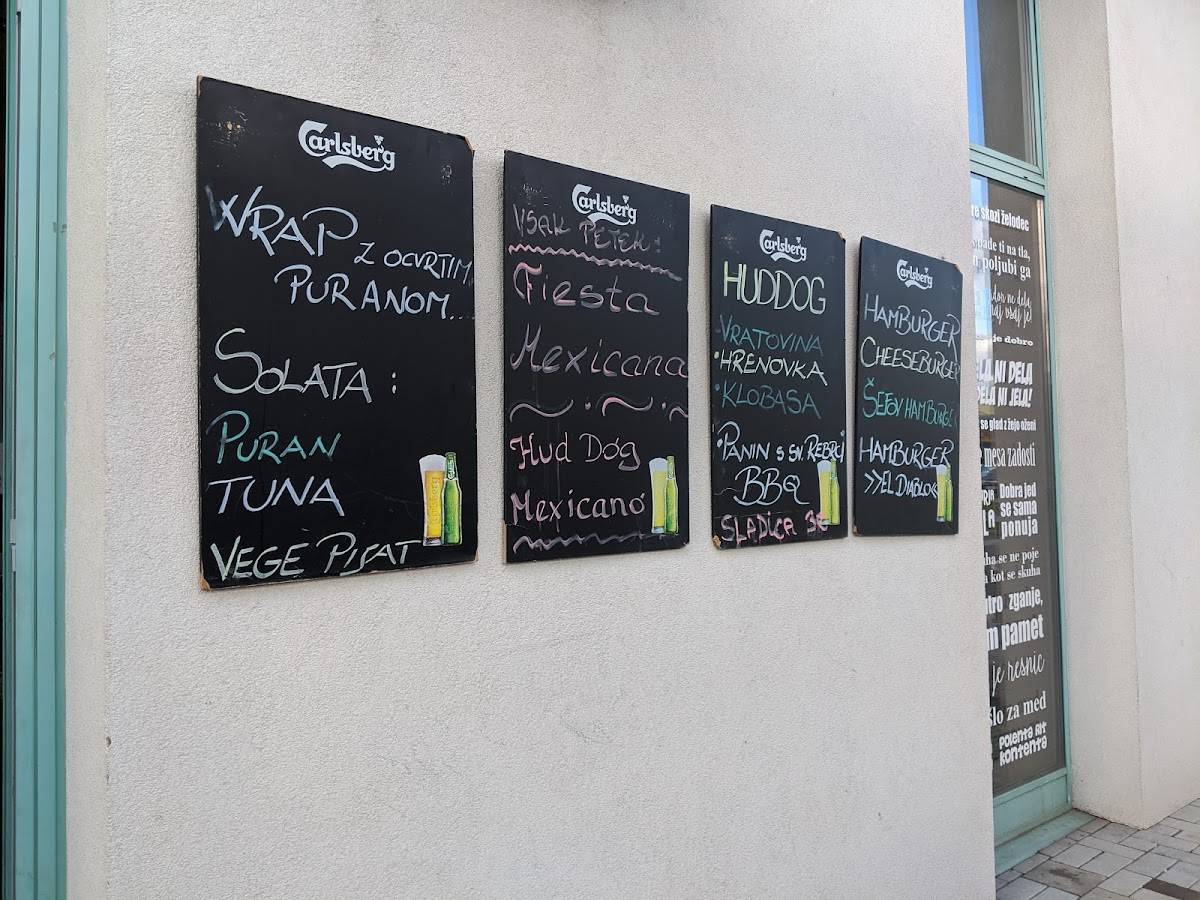 Carlsberg
WRAP Z OCVRTIM
PURANOM....
SOLATA :
PURAN
TUNA
VEGE PIJAT
Carlsberg
VSAK PETEK :
Fiesta
Mexicana
Hud Dog
Mexicano
Carlsberg
HUDDOG
VRATOVINA
• HRENOVKA
• KLOBASA
• PANIN S SV. REBRCI
BBQ
SLADICA 3€
Carlsberg
HAMBURGER
CHEESEBURGER
ŠEFOV HAMBURGER
HAMBURGER
>>EL DIABLO<<
re skozi želodec
pade ti na tla,
n poljubi ga
dor ne dela
naj vsaj je!
je dobro
LA NI DELA
DELA NI JELA!
se glad z žejo oženi
mesa zadosti
Dobra jed
se sama
ponuja
ha se ne poje
a kot se skuha
utro zganje,
m pamet
je resnic
šlo za med
POLENTA RIT
KONTENTA